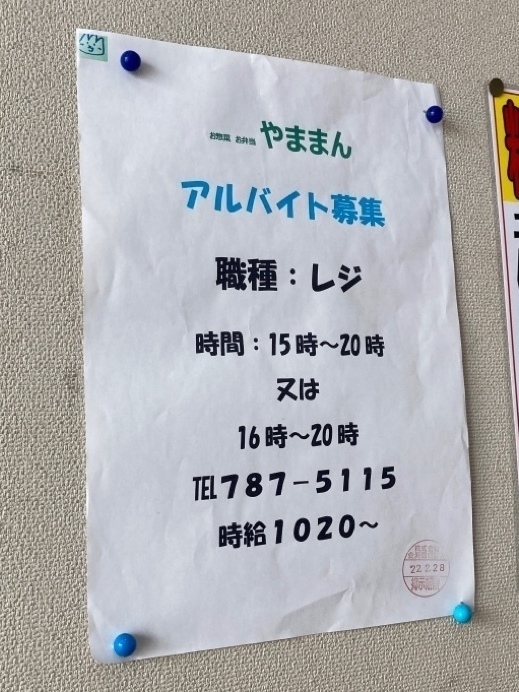 お惣菜 お弁当 やままん
アルバイト募集
職種：レジ
時間：15時～20時
又は
16時～20時
TEL787－5115
時給1020～
22.2.28